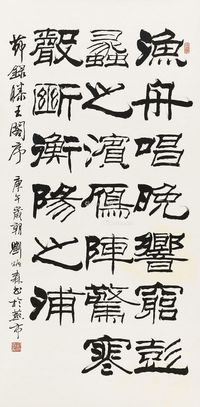 漁舟唱晚響窮彭
蠡之濱鴈陣驚寒
聲斷衡陽之浦
節錄滕王閣序 庚午歲朝劉炳森書於燕市